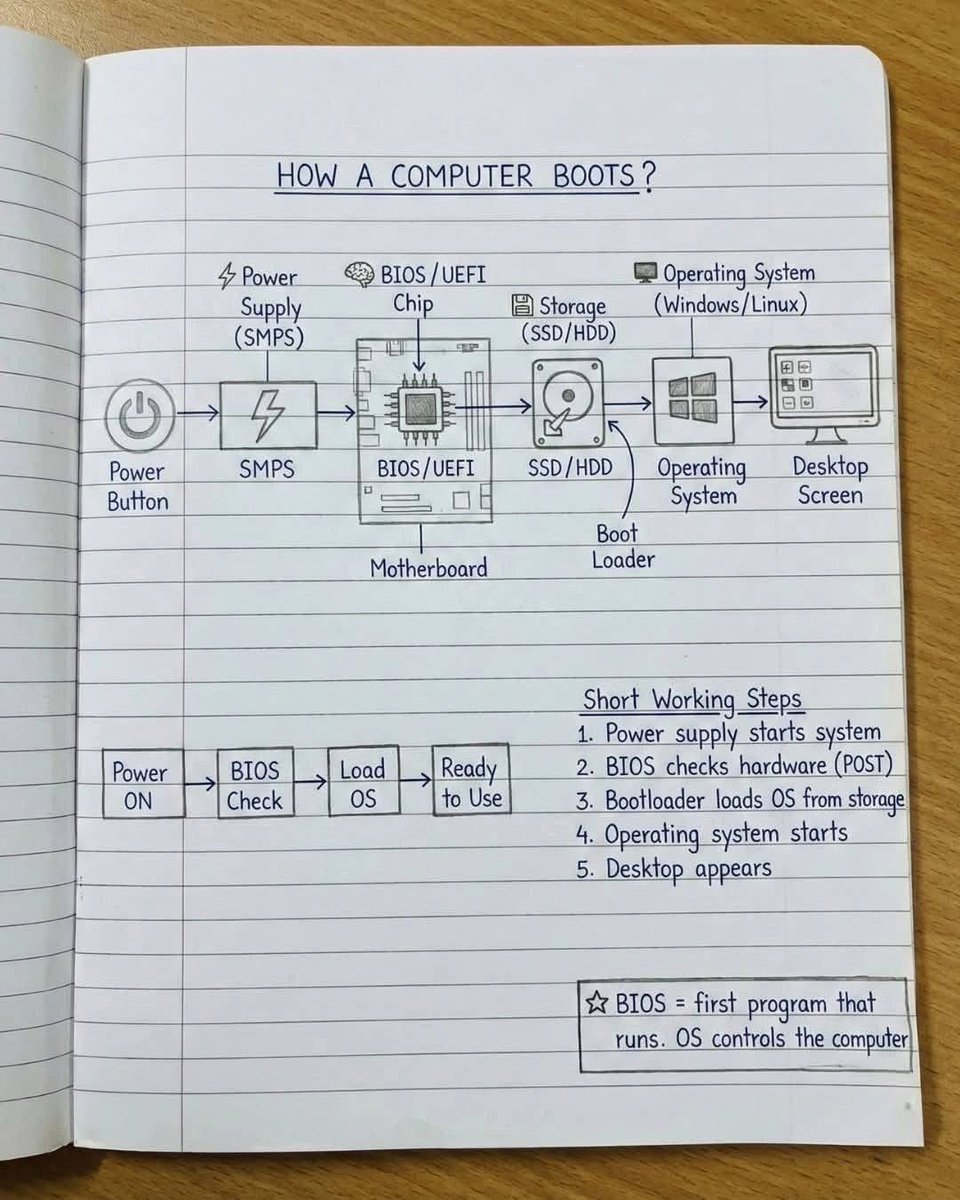 HOW A COMPUTER BOOTS?
Power
Supply
(SMPS)
BIOS/UEFI
Chip
Storage
(SSD/HDD)
Operating System
(Windows/Linux)
Power
Button
SMPS
BIOS/UEFI
SSD/HDD
Operating
System
Desktop
Screen
Motherboard
Boot
Loader
Power
ON
BIOS
Check
Load
OS
Ready
to Use
Short Working Steps
1. Power supply starts system
2. BIOS checks hardware (POST)
3. Bootloader loads OS from storage
4. Operating system starts
5. Desktop appears
☆ BIOS = first program that
runs. OS controls the computer